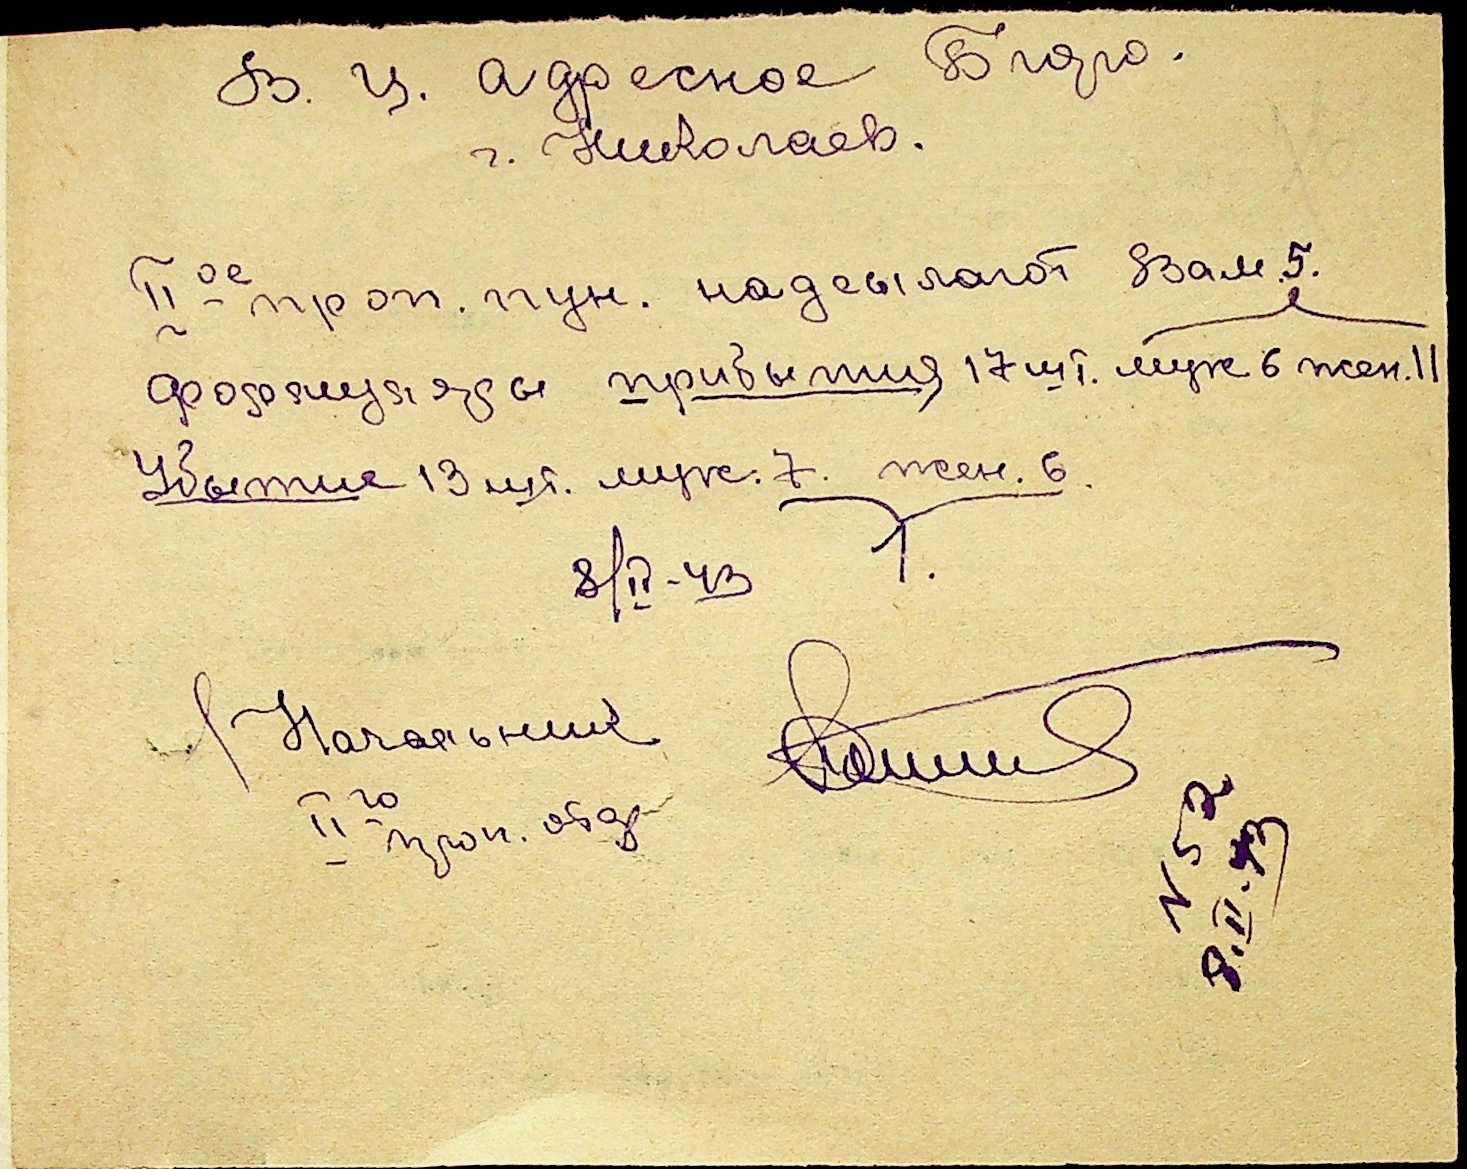 В. Ц. Адресное Бюро.
г. Николаев.
II ое проп. пун. надсылают Вам 5.
формуляры прибытия 17 шт. муж 6 жен. 11
Убытие 13 шт. муж. 7. жен. 6.
8/II-43 1.
Начальник
II го проп. отд
N 52
8.II.43